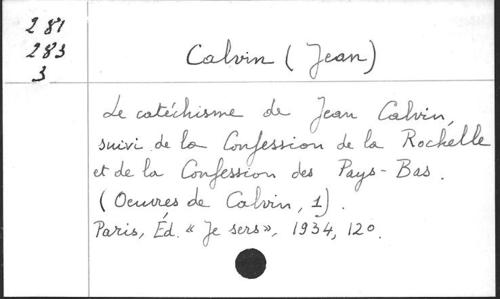 281
283
3
Calvin (Jean)
Le catéchisme de Jean Calvin,
suivi de la Confession de la Rochelle
et de la Confession des Pays-Bas.
(Oeuvres de Calvin, 1).
Paris, Éd. « Je sers », 1934, 12o.